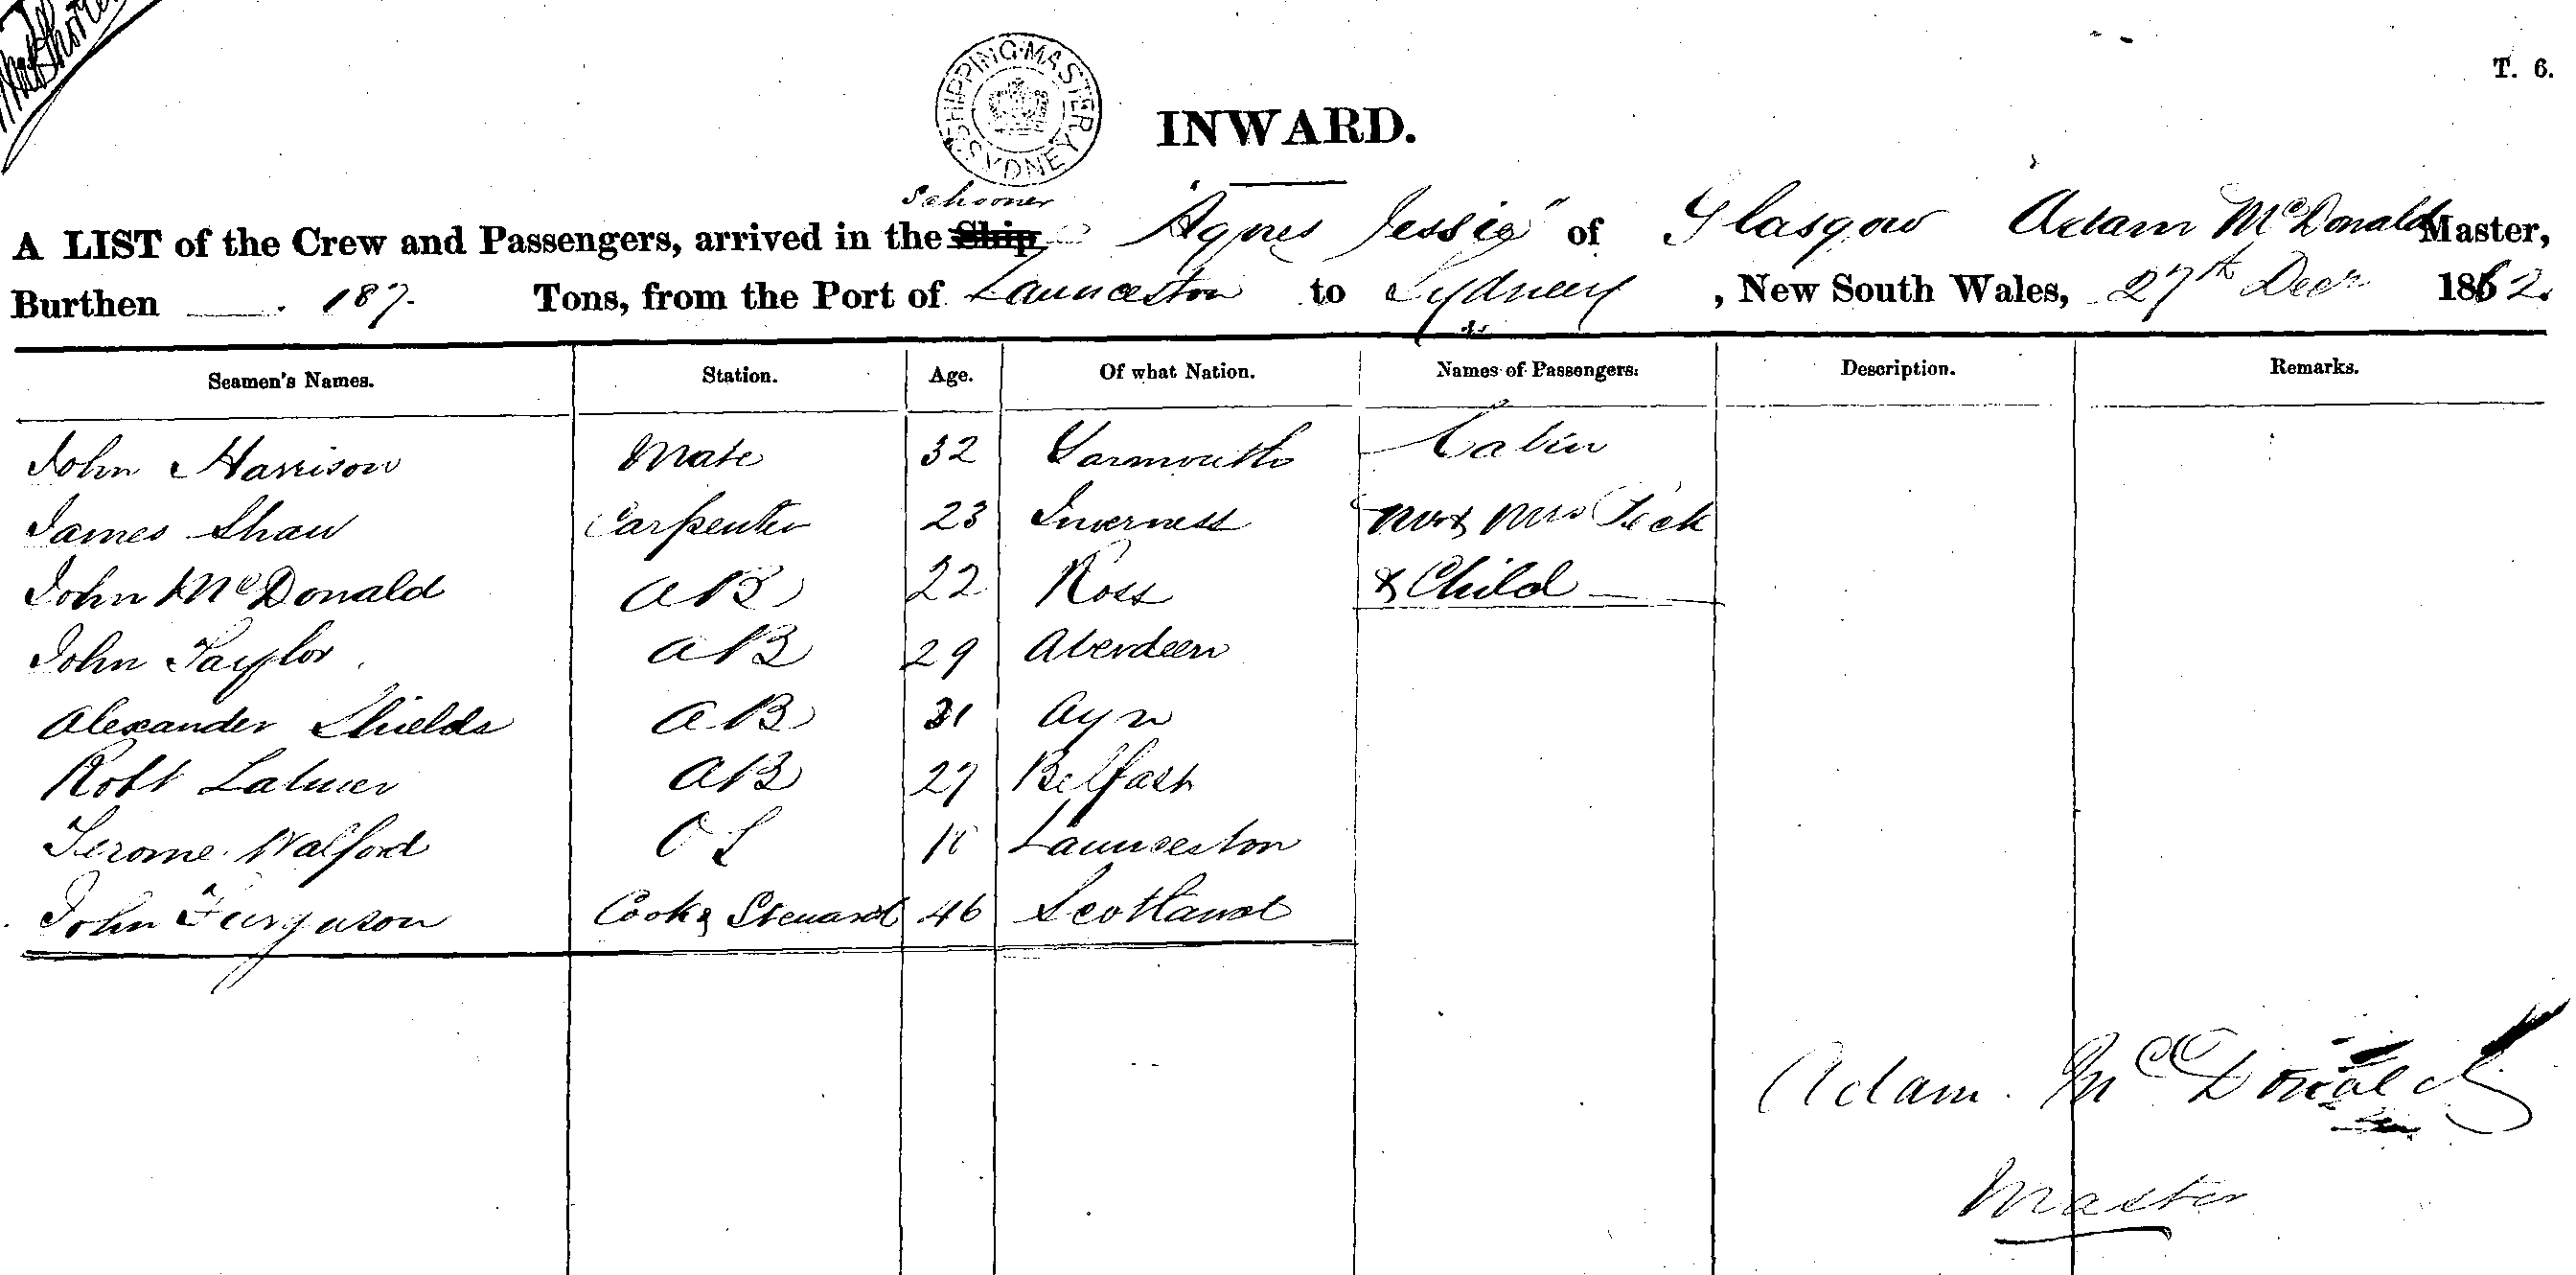 T. 6.
SHIPPING MASTER SYDNEY
INWARD.
Schooner
A LIST of the Crew and Passengers, arrived in the Ship "Agnes Jessie" of Glasgow Adam McDonald Master,
Burthen 187 Tons, from the Port of Launceston to Sydney, New South Wales, 27th Decr 1862.
Seamen's Names. Station. Age. Of what Nation. Names of Passengers. Description. Remarks.
John Harrison Mate 32 Yarmouth Cabin
James Shaw Carpenter 23 Inverness Mr & Mrs Peck
John McDonald AB 22 Ross & Child
John Taylor AB 29 Aberdeen
Alexander Shields AB 31 Ayr
Robt AB 27 Belfast
Jerome Walford OS Launceston
John Ferguson Cook & Steward 46 Scotland
Adam McDonald
Master